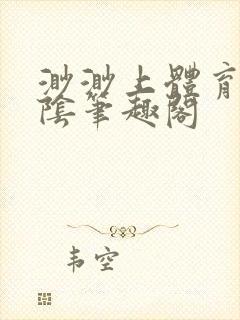 渺渺上體育
陰筆趣閣
韦空